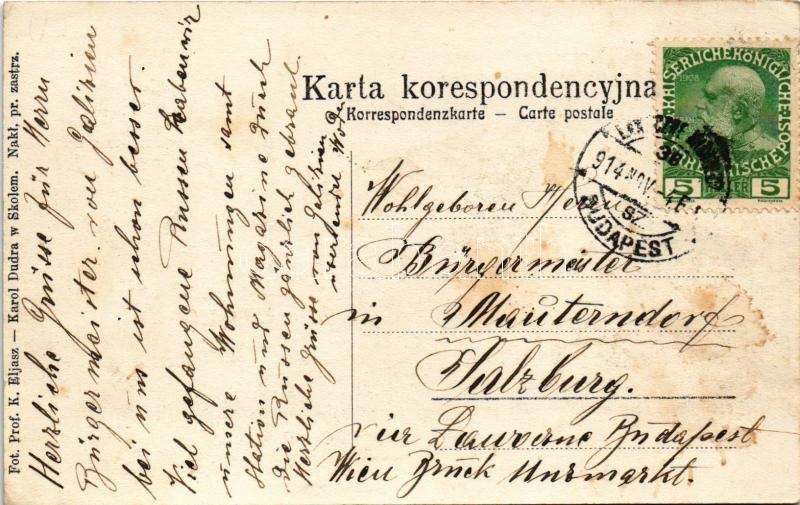 Fot. Prof. K. Eljasz — Karol Dudra w Skolem. Nakł, pr. zastrz.
Herzliche Grüsse für Herrn
Bürgermeister von Galizien
bei uns ist schon besser.
Viel gefangene Russen haben wir
unsere Wohnungen samt
Station und Magazine durch
die Russen gänzlich gebrant.
Herzliche Grüsse von Galizien
übersendet
Karta korespondencyjna
Korrespondenzkarte — Carte postale
KAISERLICHE KÖNIGLICHE
1908
5 HELLER 5
914 NOV
BUDAPEST
Wohlgeboren Herr
Bürgermeister
in Mauterndorf
Salzburg.
vier Lawocne Budapest
Wien Bruck Unsmarkt.